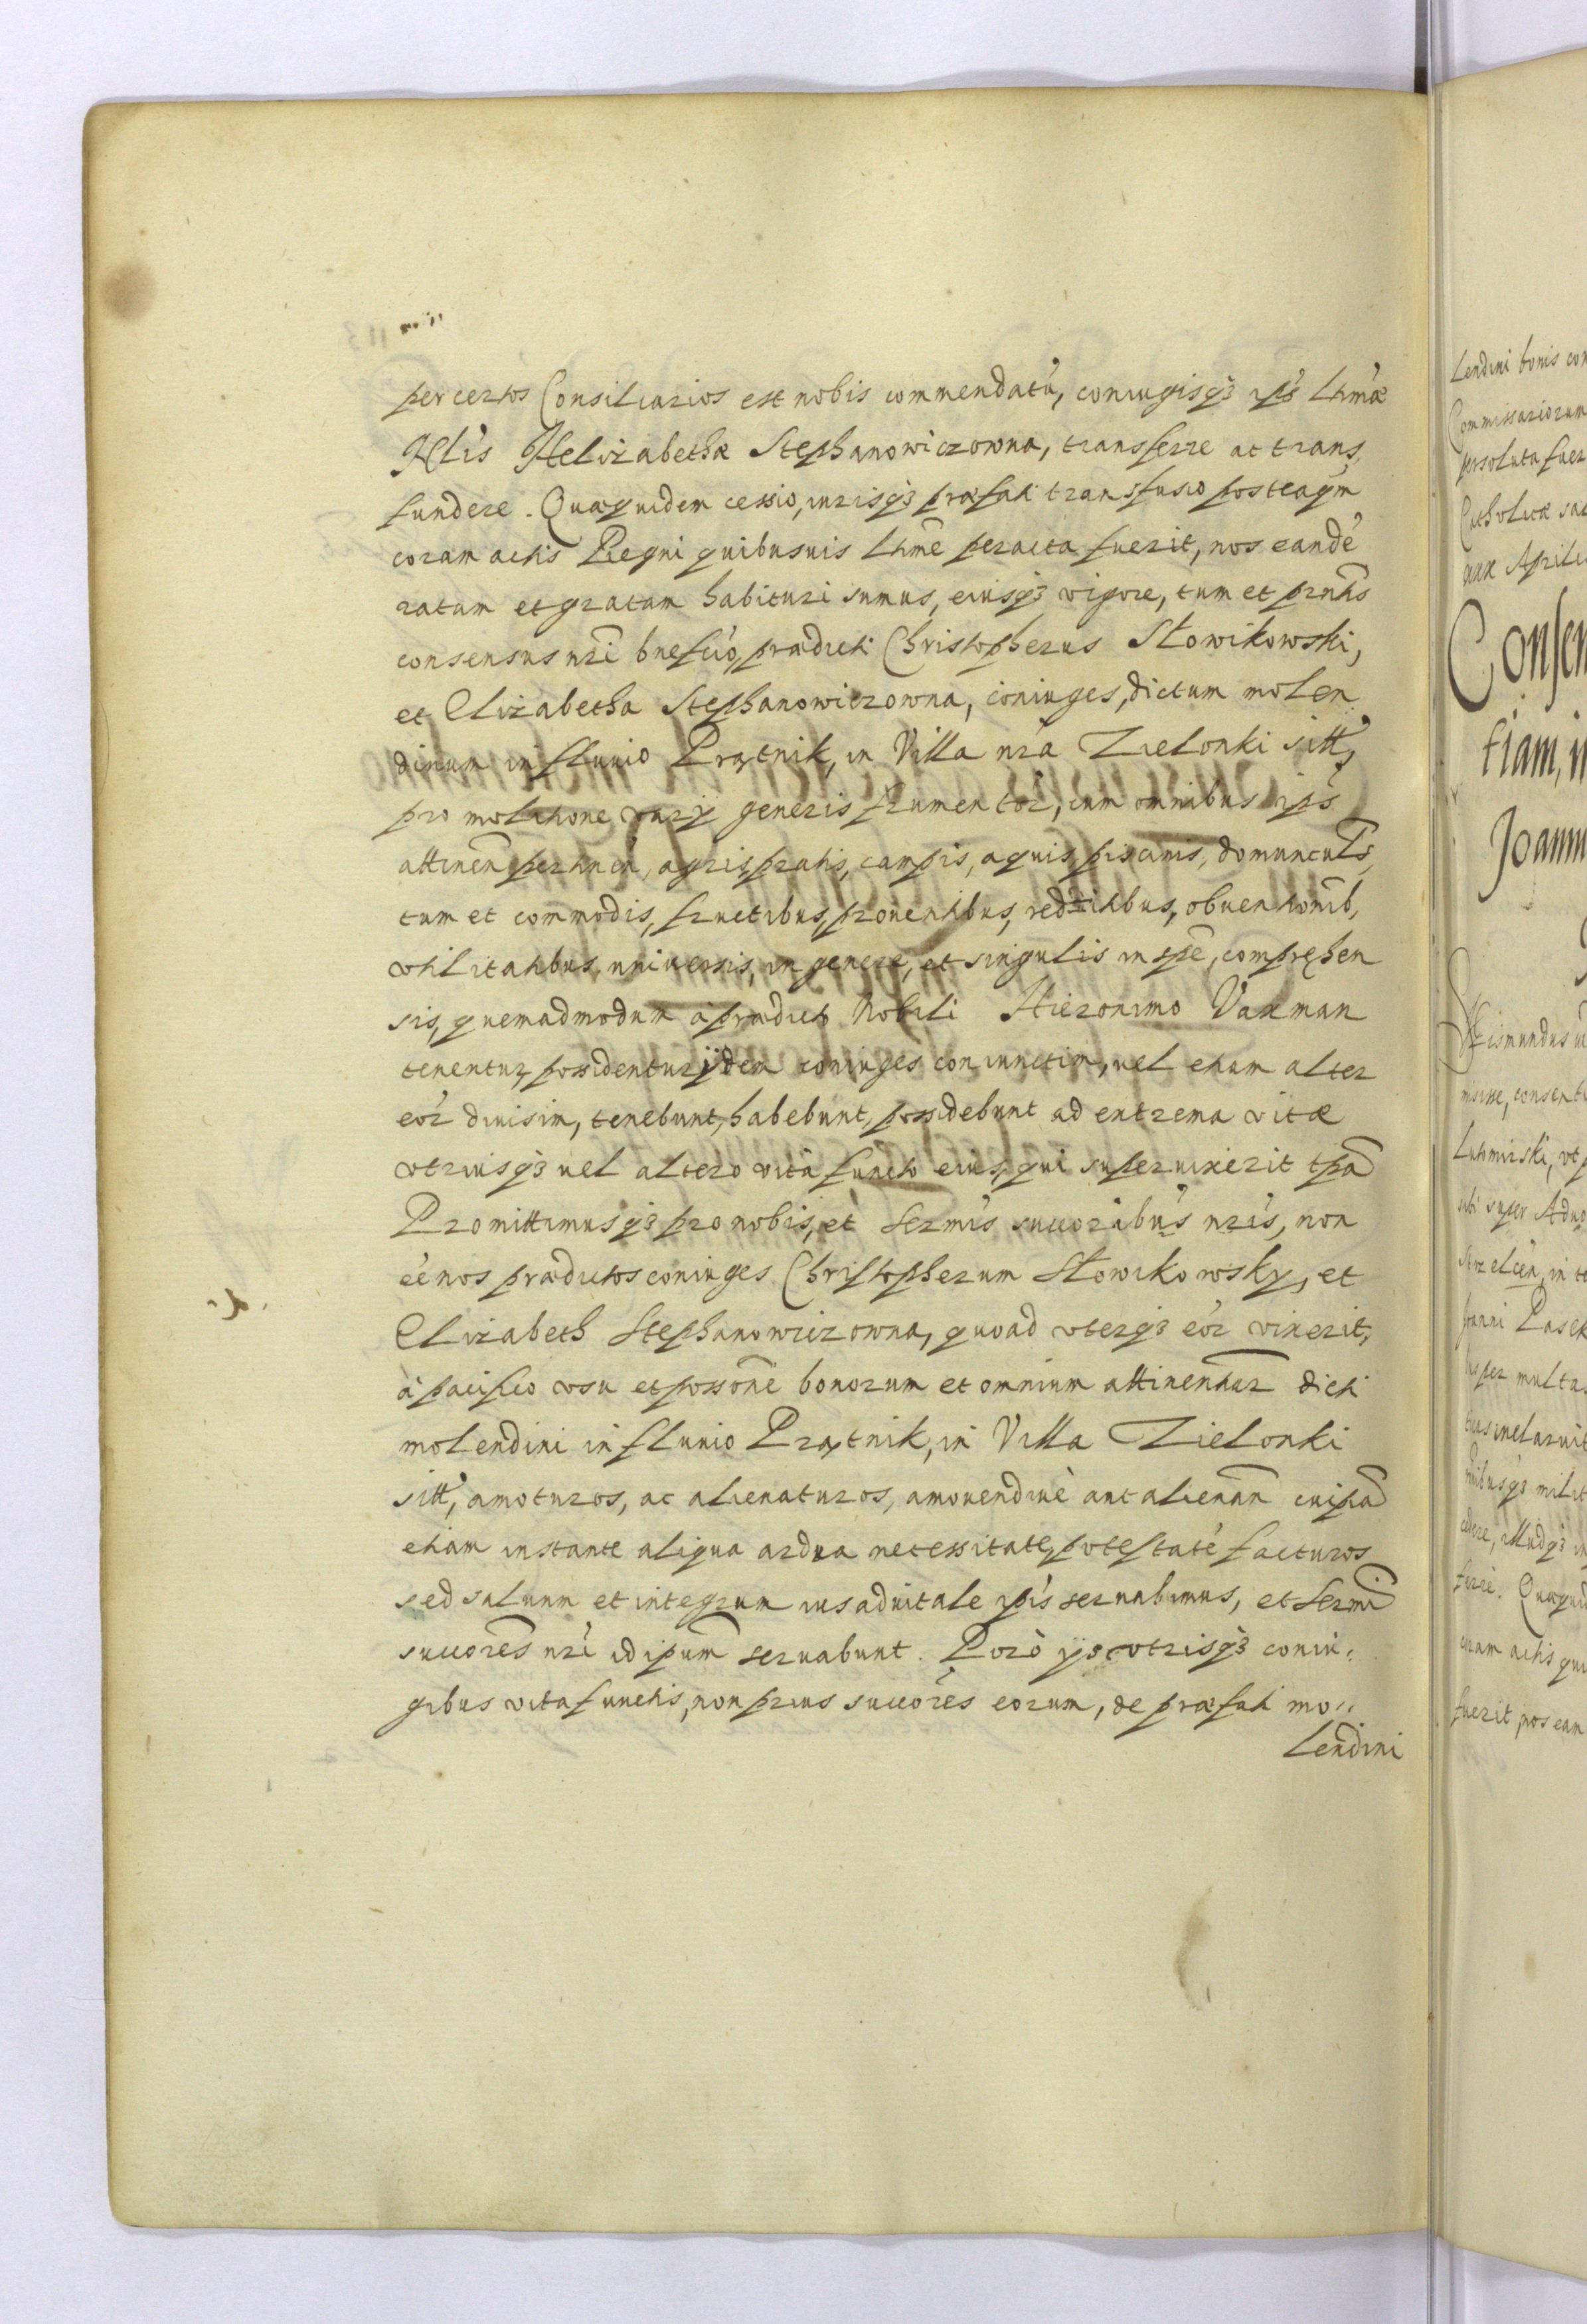 per certos Consiliarios est nobis commendatũ, coniugisq3 ips Ltimæ
Nlis Helizabethæ Stephanowiczowna, transferre ac trans,
fundere. Quæquidem cessio, iurisq3 præfati transfusio posteaqm̃
coram actis Regni quibusuis Ltimẽ peracta fuerit, nos eandẽ
ratam et gratam habituri sumus, eiusq3 vigore, tum et prntis
consensus nri bneficio, prædicti Christopherus Słowikowski,
et Elizabetha Stephanowiczowna, coniuges, dictum molen
dinum in fluuio Prątnik, in Villa nra Zielonki sitt,
pro molitione varij generis frumentor, cum omnibus ips
attinen pertinen, agris, pratis, campis, aquis, piscinis, domunculis,
tum et commodis, fructibus, prouentibus, redditibus, obuentionib,
vtilitatibus, uniuersis, in genere, et singulis in spe, compręhen
sis, quemadmodum a prædicto Nobili Hieronimo Vaxman
tenentur, possidentur, ijdem coniuges coniunctim, uel etiam alter
eor diuisim, tenebunt, habebunt, possidebunt ad extrema vitæ
vtriusq3 uel altero vita functo eius, qui superuixerit tpa
Promittimusq3 pro nobis, et Sermis succoribus nris, non
eè nos prædictos coniuges Christopherum Słowikowsky, et
Elizabeth Stephanowiczowna, quoad vterq3 eor vixerit,
à pacifico vsu et possone bonorum et omnium attinentiar dicti
molendini in fluuio Prątnik, in Villa Zielonki
sitt, amoturos, ac alienaturos, amouendiuè aut alienan cuipa
etiam instante aliqua ardua necessitate, potestatẽ facturos
sed saluum et integrum ius aduitale ipis seruabimus, et Sermi
succores nri idipum seruabunt. Porò ijs vtrisq3 coniu-
gibus vita functis, non prius succores eorum, de præfati mo,,
lendini
lendini bonis con
Commissariorum
persoluta fuer
Catholicæ sac
Aprili
Consen
tiam, i
Joanni
misisse, consenti
Luthmirski, vt p
sibi super Aduo
in te
Joanni Pasek
multa
milit
cedere, illudq3 i
ferre. Quæquid
coram actis qui
fuerit, nos ean